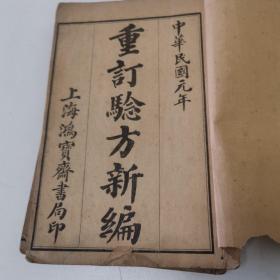 中華民國元年
重訂驗方新編
上海鴻寶齋書局印